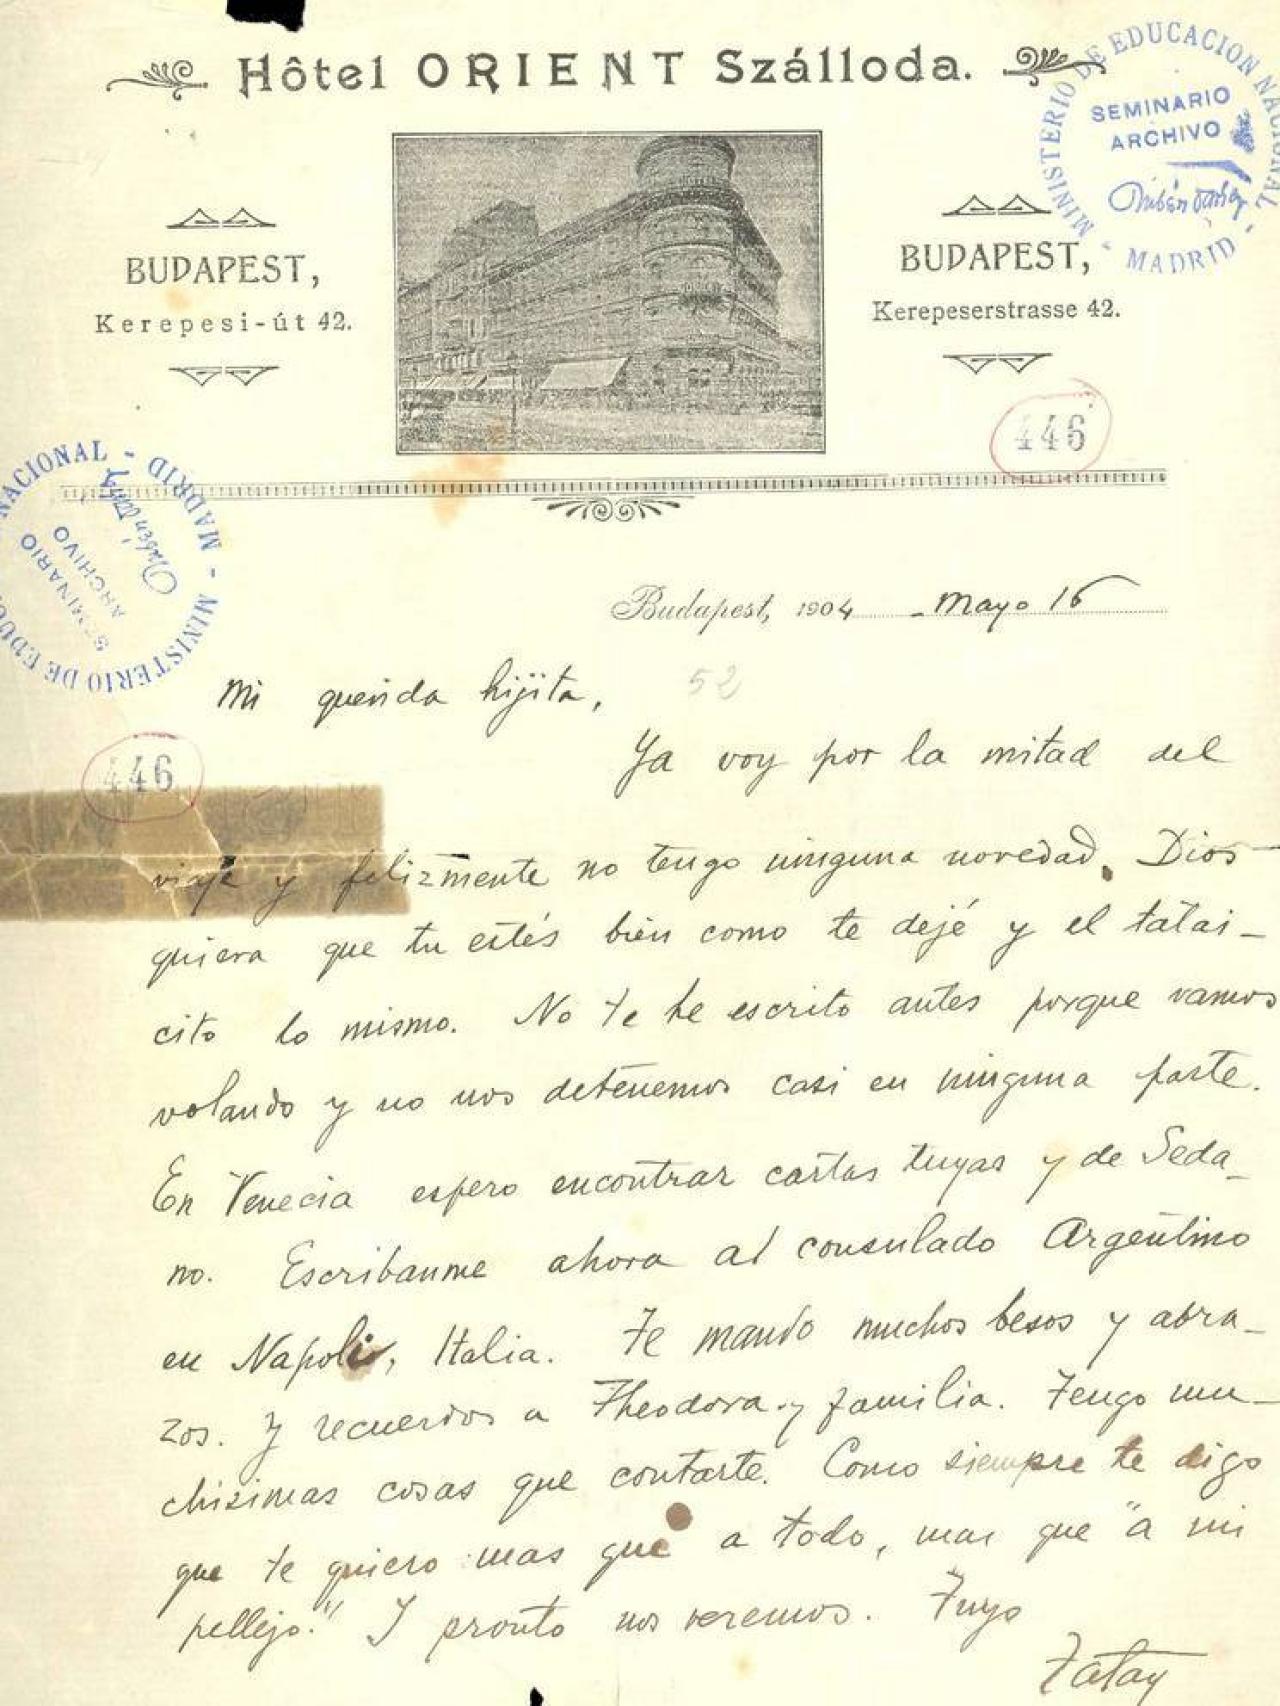 Hôtel ORIENT Szálloda.
MINISTERIO DE EDUCACION NACIONAL - MADRID -
SEMINARIO
ARCHIVO
Rubén Darío
BUDAPEST,
Kerepesi-út 42.
BUDAPEST,
Kerepeserstrasse 42.
446
MINISTERIO DE EDUCACION NACIONAL - MADRID -
SEMINARIO
ARCHIVO
Rubén Darío
Budapest, 1904 - Mayo 16
Mi querida hijita,
52
Ya voy por la mitad del
446
viaje y felizmente no tengo ninguna novedad. Dios
quiera que tu estés bien como te dejé y el tatai-
cito lo mismo. No te he escrito antes porque vamos
volando y no nos detenemos casi en ninguna parte.
En Venecia espero encontrar cartas tuyas y de Seda-
no. Escribanme ahora al consulado Argentino
en Napoli, Italia. Te mando muchos besos y abra-
zos. Y recuerdos a Theodora y familia. Tengo mu-
chisimas cosas que contarte. Como siempre te digo
que te quiero mas que a todo, mas que "a mi
pellejo." Y pronto nos veremos. Tuyo
Tatay